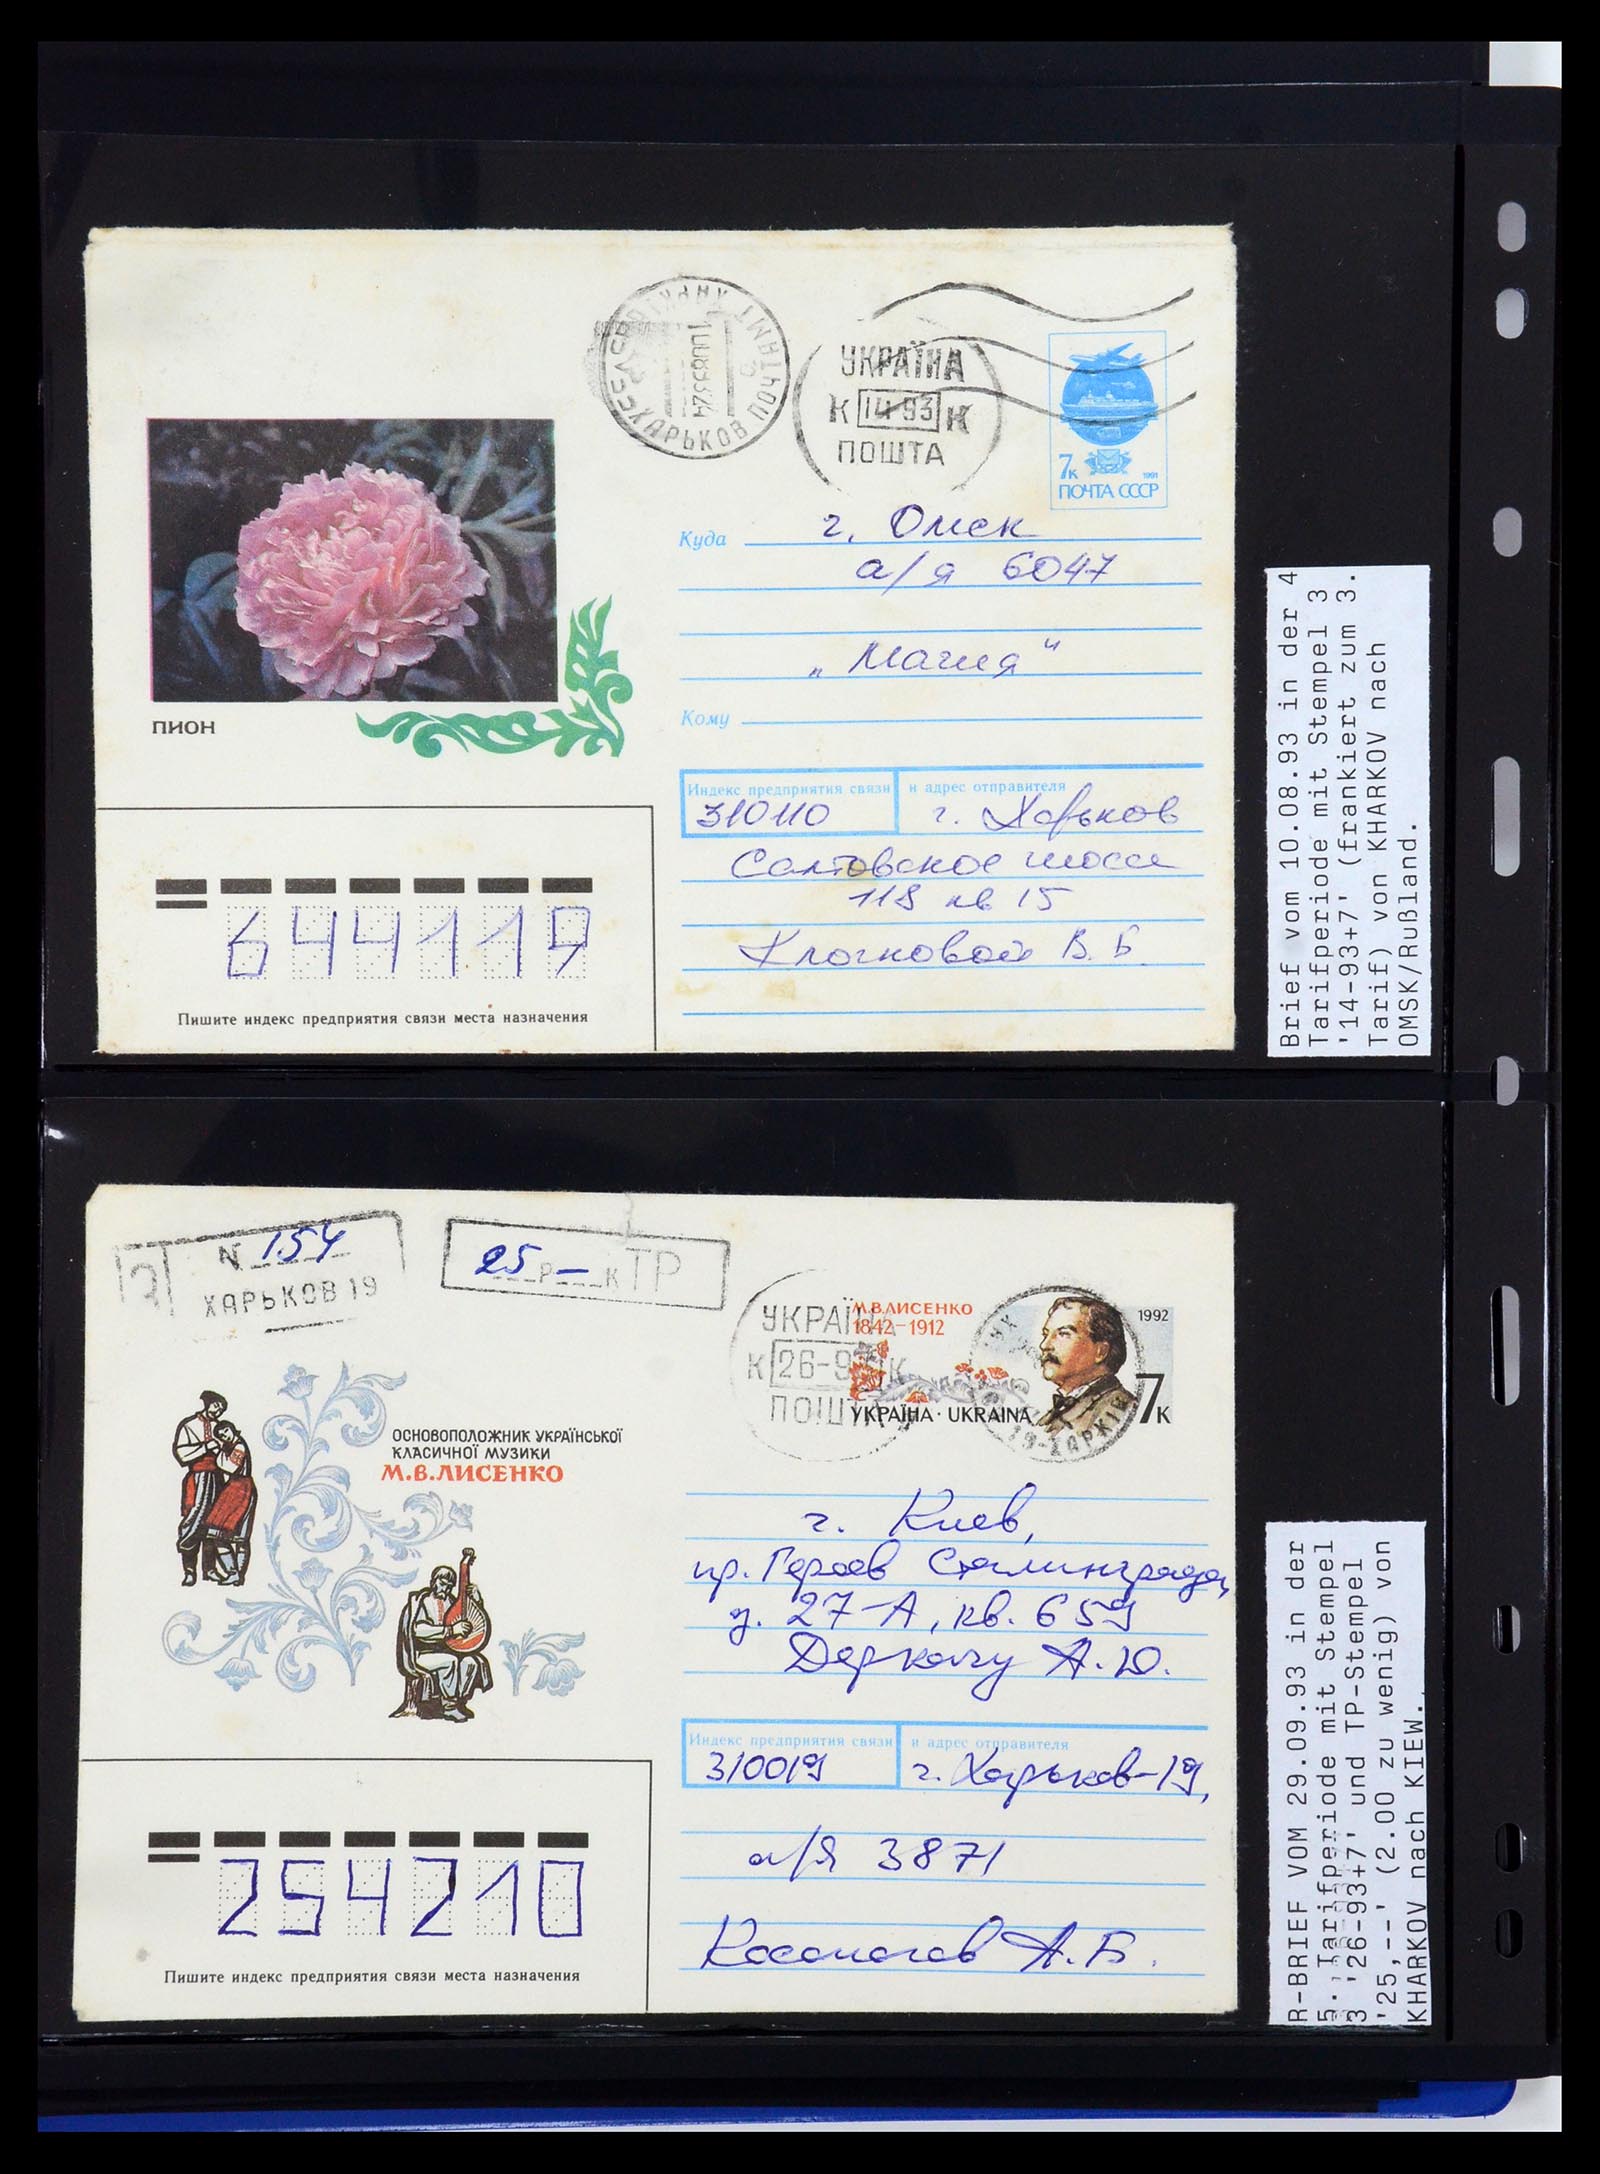 ХАРЬКОВ ПОЧТАМТ
УКРАЇНА
К 14-93 К
ПОШТА
7к 1991
ПОЧТА СССР
ПИОН
Куда г. Омск
а/я 6047
„Магия“
Кому
Индекс предприятия связи и адрес отправителя
310110 г. Харьков
Салтовское шоссе
118 кв 15
Клочковой В.Б.
644119
Пишите индекс предприятия связи места назначения
Brief vom 10.08.93 in der 4
Tarifperiode mit Stempel 3
'14-93+7' (frankiert zum 3.
Tarif) von KHARKOV nach
OMSK/Rußland.
N 154
ХАРЬКОВ 19
25 р — к ТР
УКРАЇНА
К 26-93 К
ПОШТА
М.В.ЛИСЕНКО
1842-1912
1992
7к
УКРАЇНА · UKRAINA
ОСНОВОПОЛОЖНИК УКРАЇНСЬКОЇ
КЛАСИЧНОЇ МУЗИКИ
М.В.ЛИСЕНКО
г. Киев,
пр. Героев Сталинграда,
д. 27-А, кв. 659
Деркачу А.Ю.
Индекс предприятия связи и адрес отправителя
310019 г. Харьков-19,
а/я 3871
Косоногов А.Б.
254210
Пишите индекс предприятия связи места назначения
R-BRIEF VOM 29.09.93 in der
5. Tarifperiode mit Stempel
3 '26-93+7' und TP-Stempel
'25,--' (2.00 zu wenig) von
KHARKOV nach KIEW.